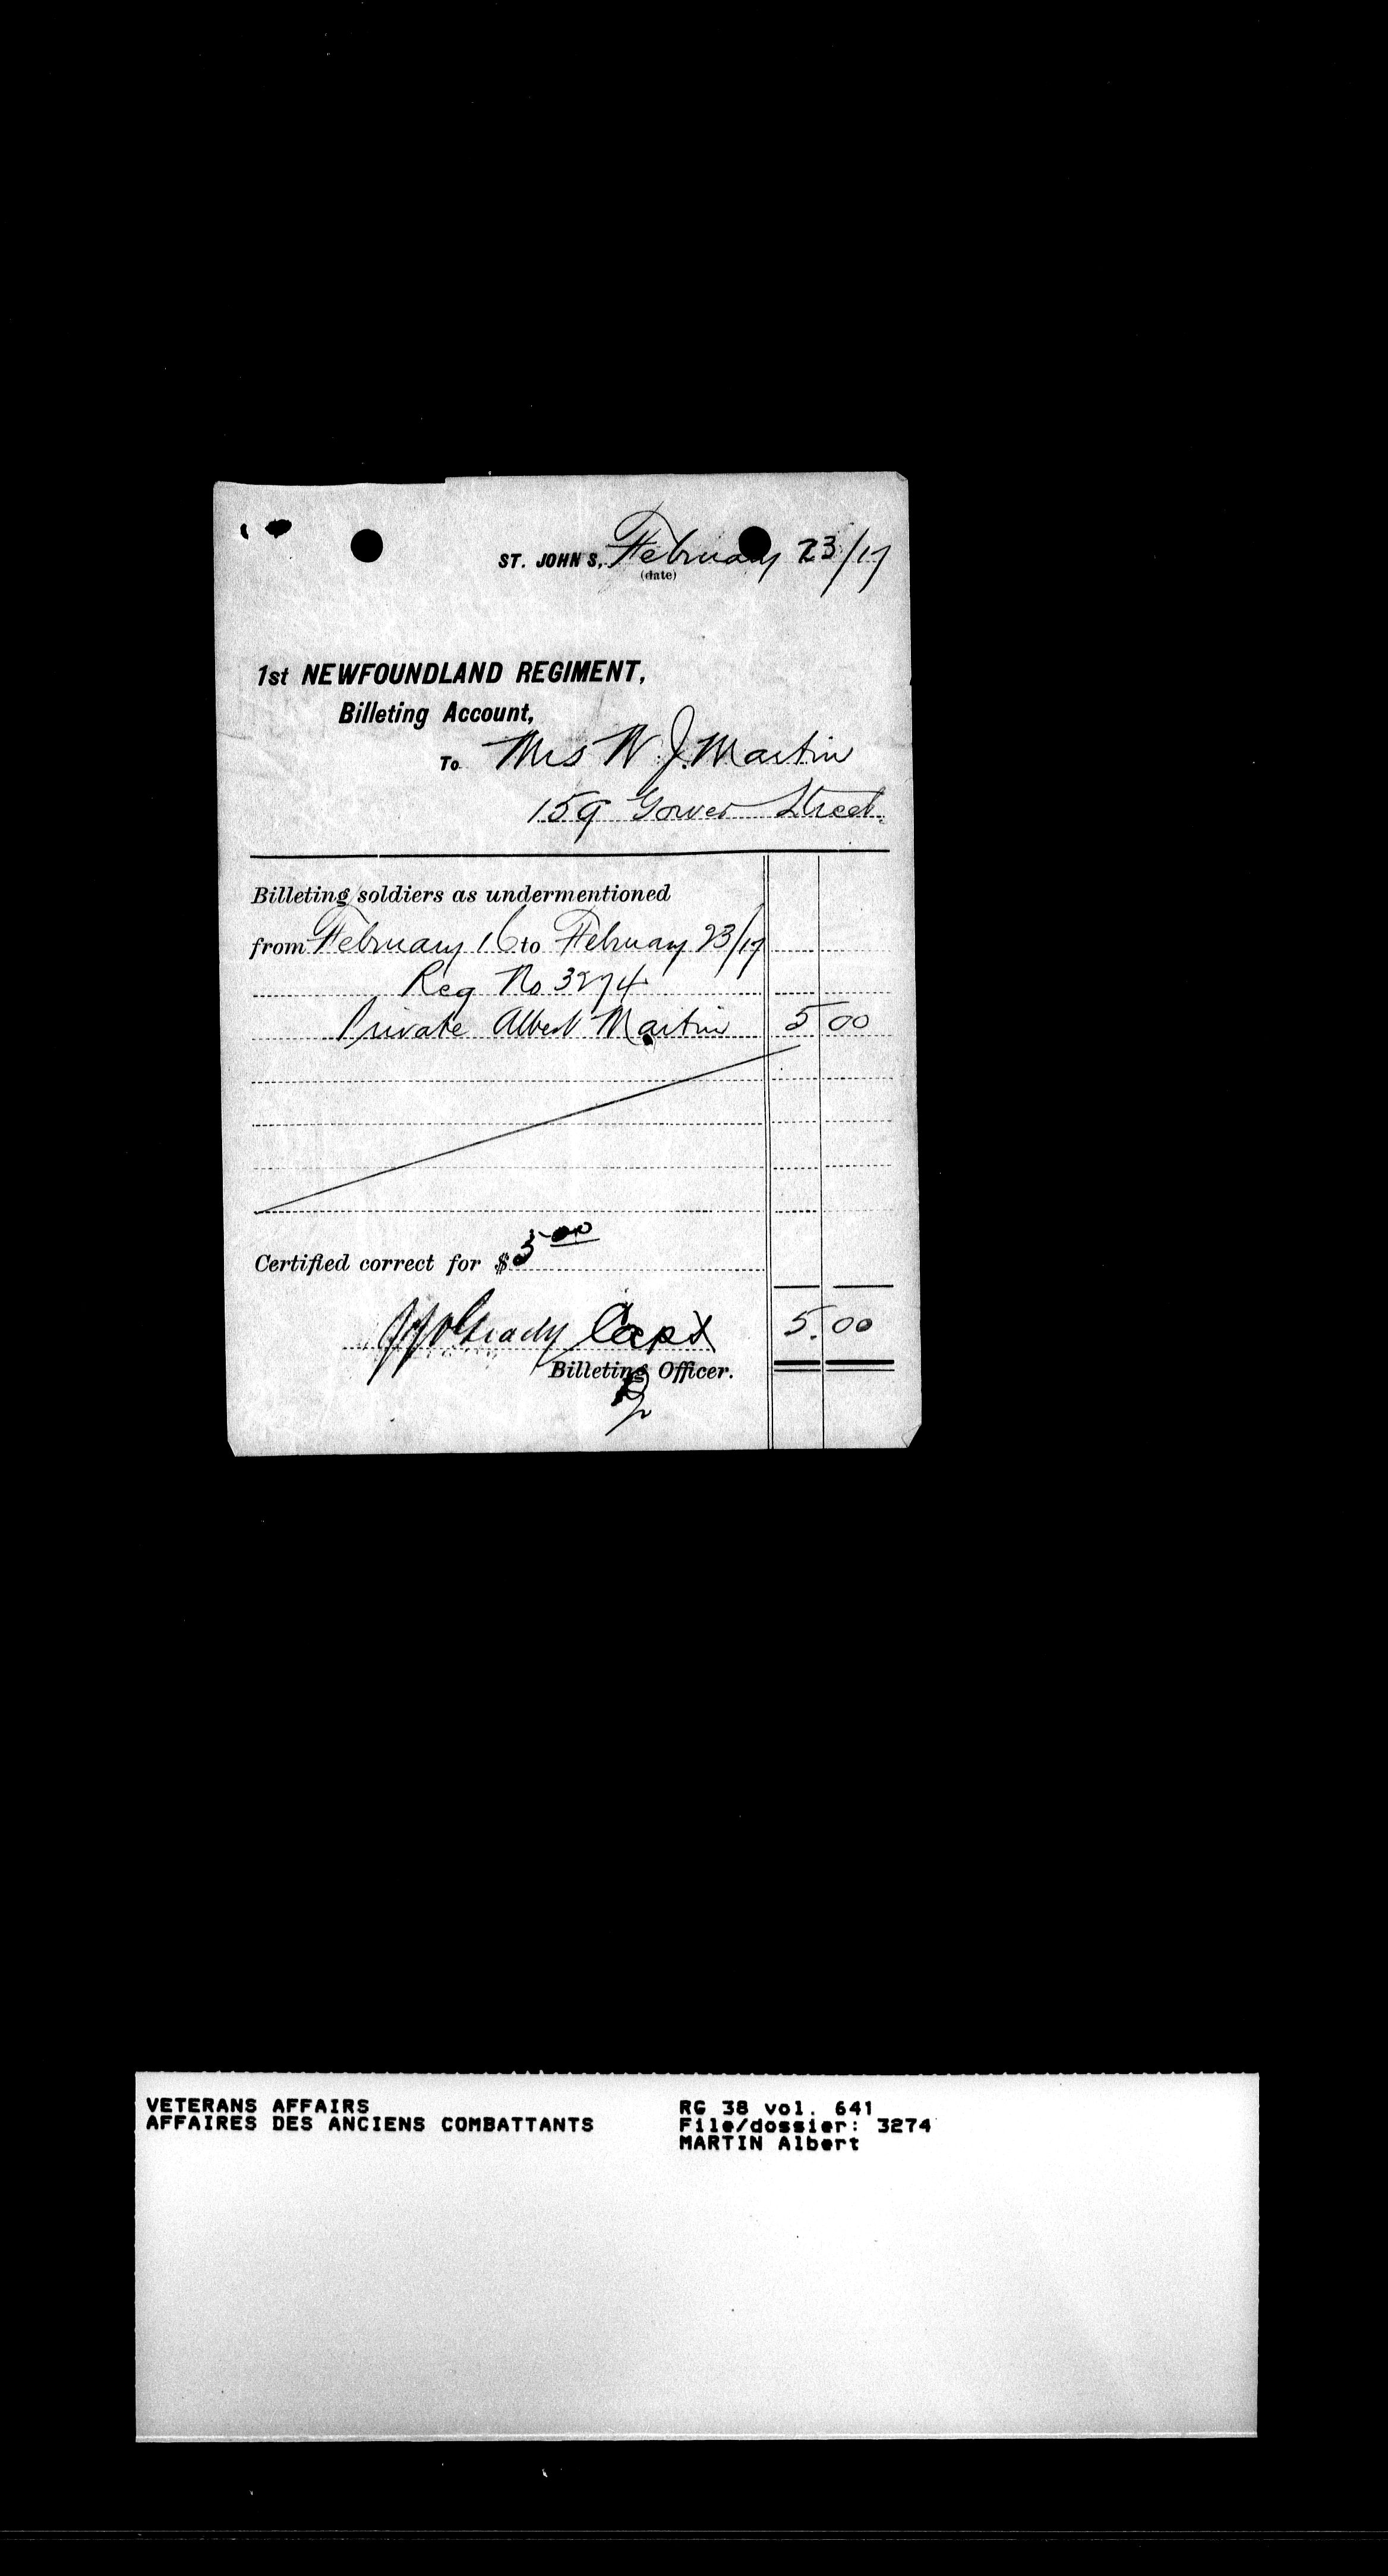 ST. JOHN'S, February 23/17
(date)
1st NEWFOUNDLAND REGIMENT,
Billeting Account,
To Mrs W. J. Martin
159 Gower Street.
Billeting soldiers as undermentioned
from February 16 to February 23/17
Reg No 3274
Private Albert Martin 5 00
Certified correct for $5 00
O'Grady Capt 5.00
Billeting Officer.
VETERANS AFFAIRS RG 38 vol. 641
AFFAIRES DES ANCIENS COMBATTANTS File/dossier: 3274
MARTIN Albert